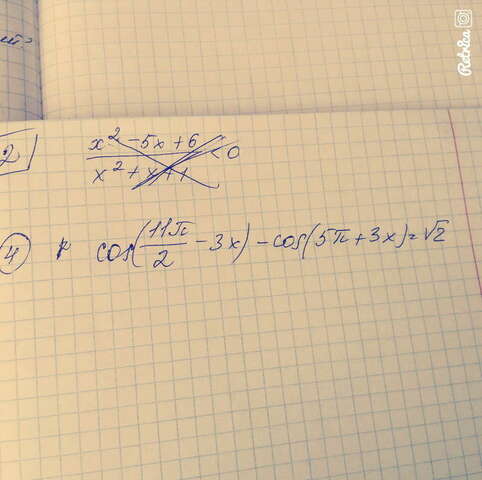 Retrica
2 x² - 5x + 6 / x² + x + 1 < 0
4 cos(11π/2 - 3x) - cos(5π + 3x) = √2